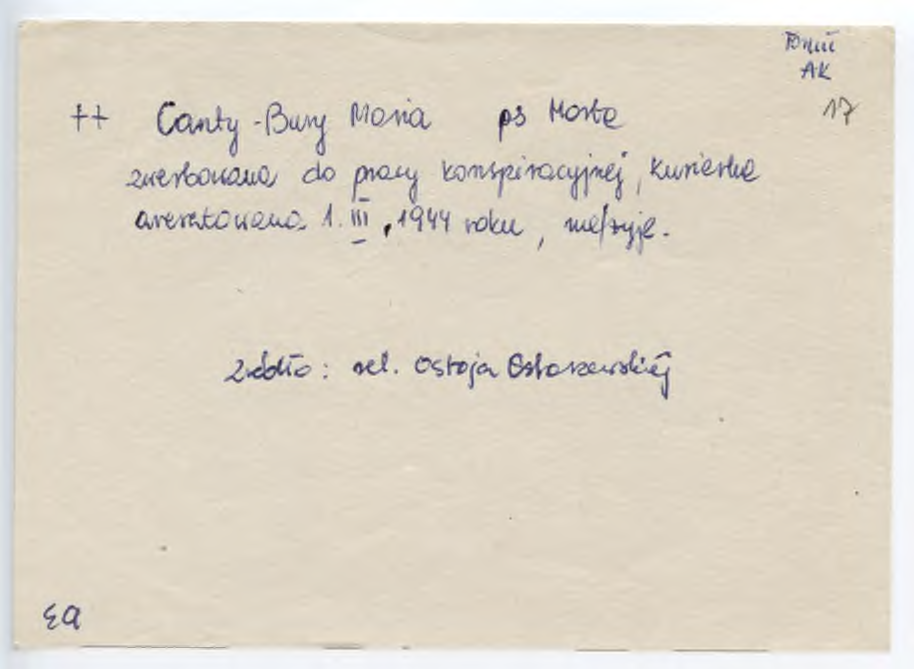 AK
17
++ Canty-Bury Maria ps
zwerbowana do pracy konspiracyjnej, kurierka
aresztowana 1. III, 1944 roku, nie/żyje.
źródło: rel. Ostoja Ostaszewskiej